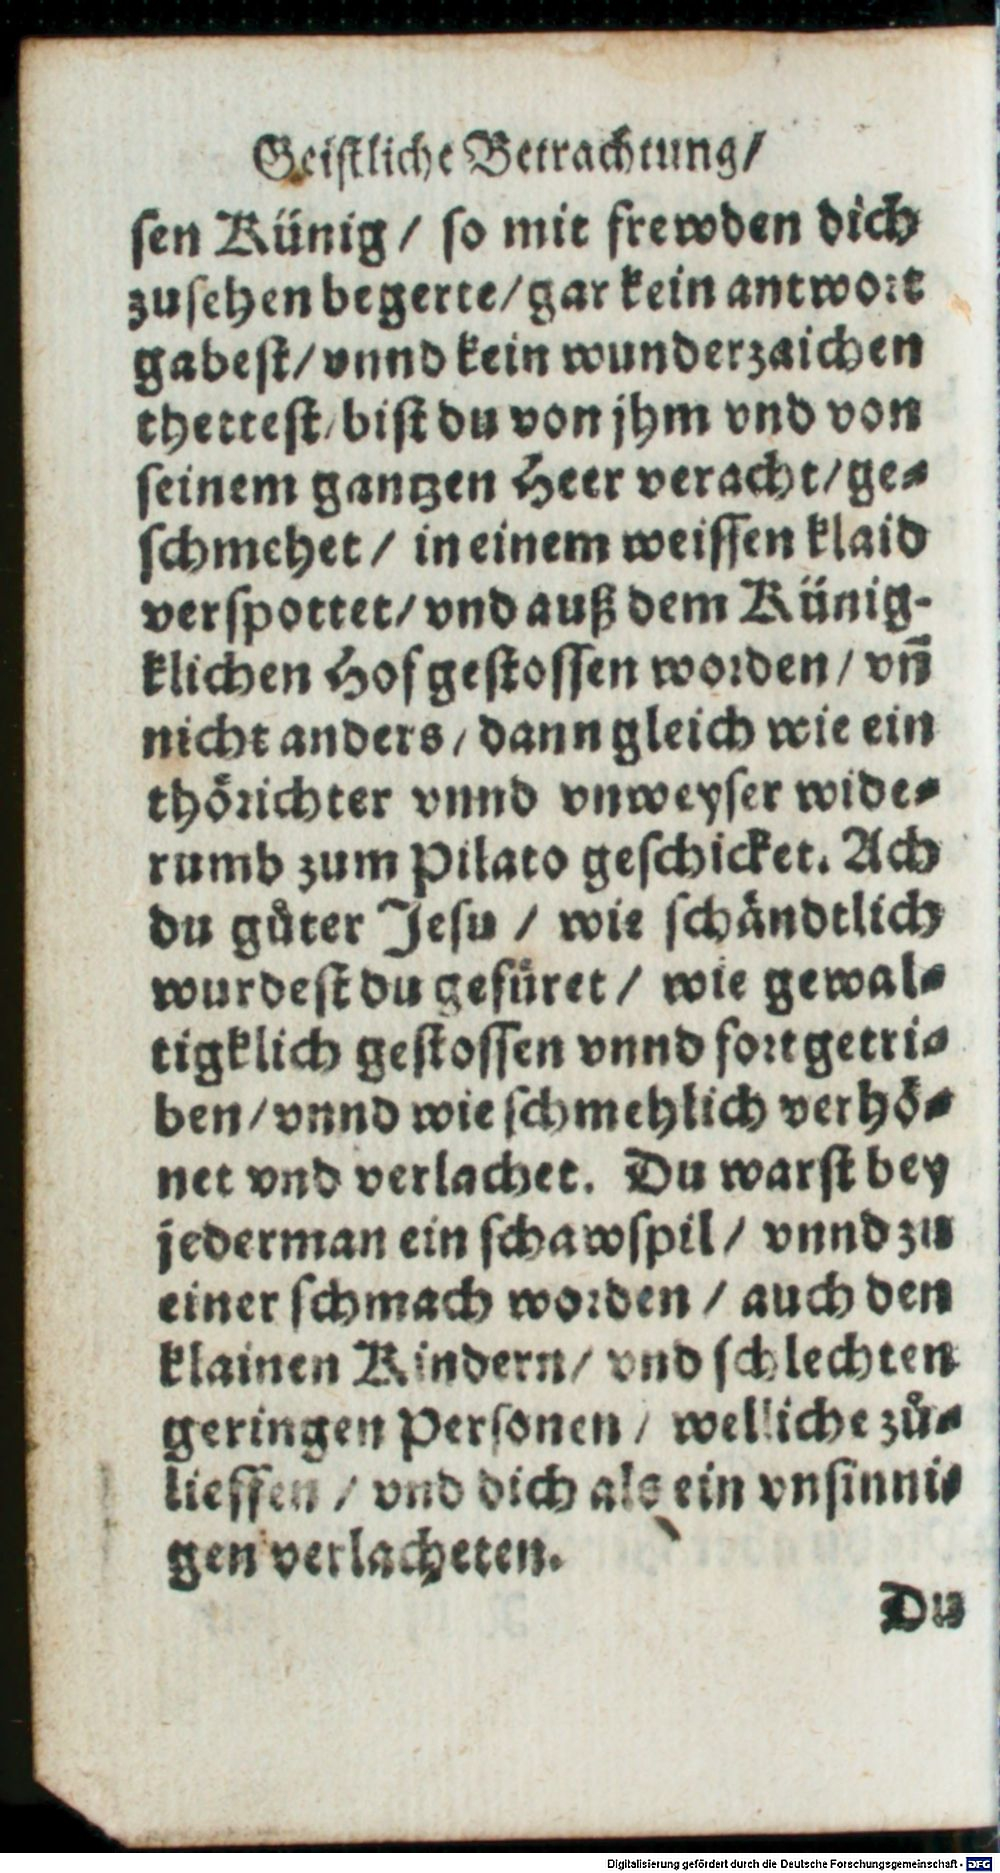 Geistliche Betrachtung/
sen Künig/ so mit frewden dich
zusehen begerte/gar kein antwort
gabest/vnnd kein wunderzaichen
thettest/bist du von jhm vnd von
seinem gantzen Heer veracht/ge-
schmehet/ in einem weissen klaid
verspottet/vnd auß dem Künig-
klichen Hof gestossen worden/ vñ
nicht anders/dann gleich wie ein
thöꝛichter vnnd vnweyser wide-
rumb zum Pilato geschicket. Ach
du gůter Jesu / wie schändtlich
wurdest du gefüret/ wie gewal-
tigklich gestossen vnnd fort getri-
ben/vnnd wie schmehlich verhö-
net vnd verlachet. Du warst bey
jederman ein schawspil/ vnnd zu
einer schmach worden/ auch den
klainen Kindern/ vnd schlechten
geringen Personen/ welliche zů-
lieffen / vnd dich als ein vnsinni-
gen verlacheten.
Du
Digitalisierung gefördert durch die Deutsche Forschungsgemeinschaft - DFG